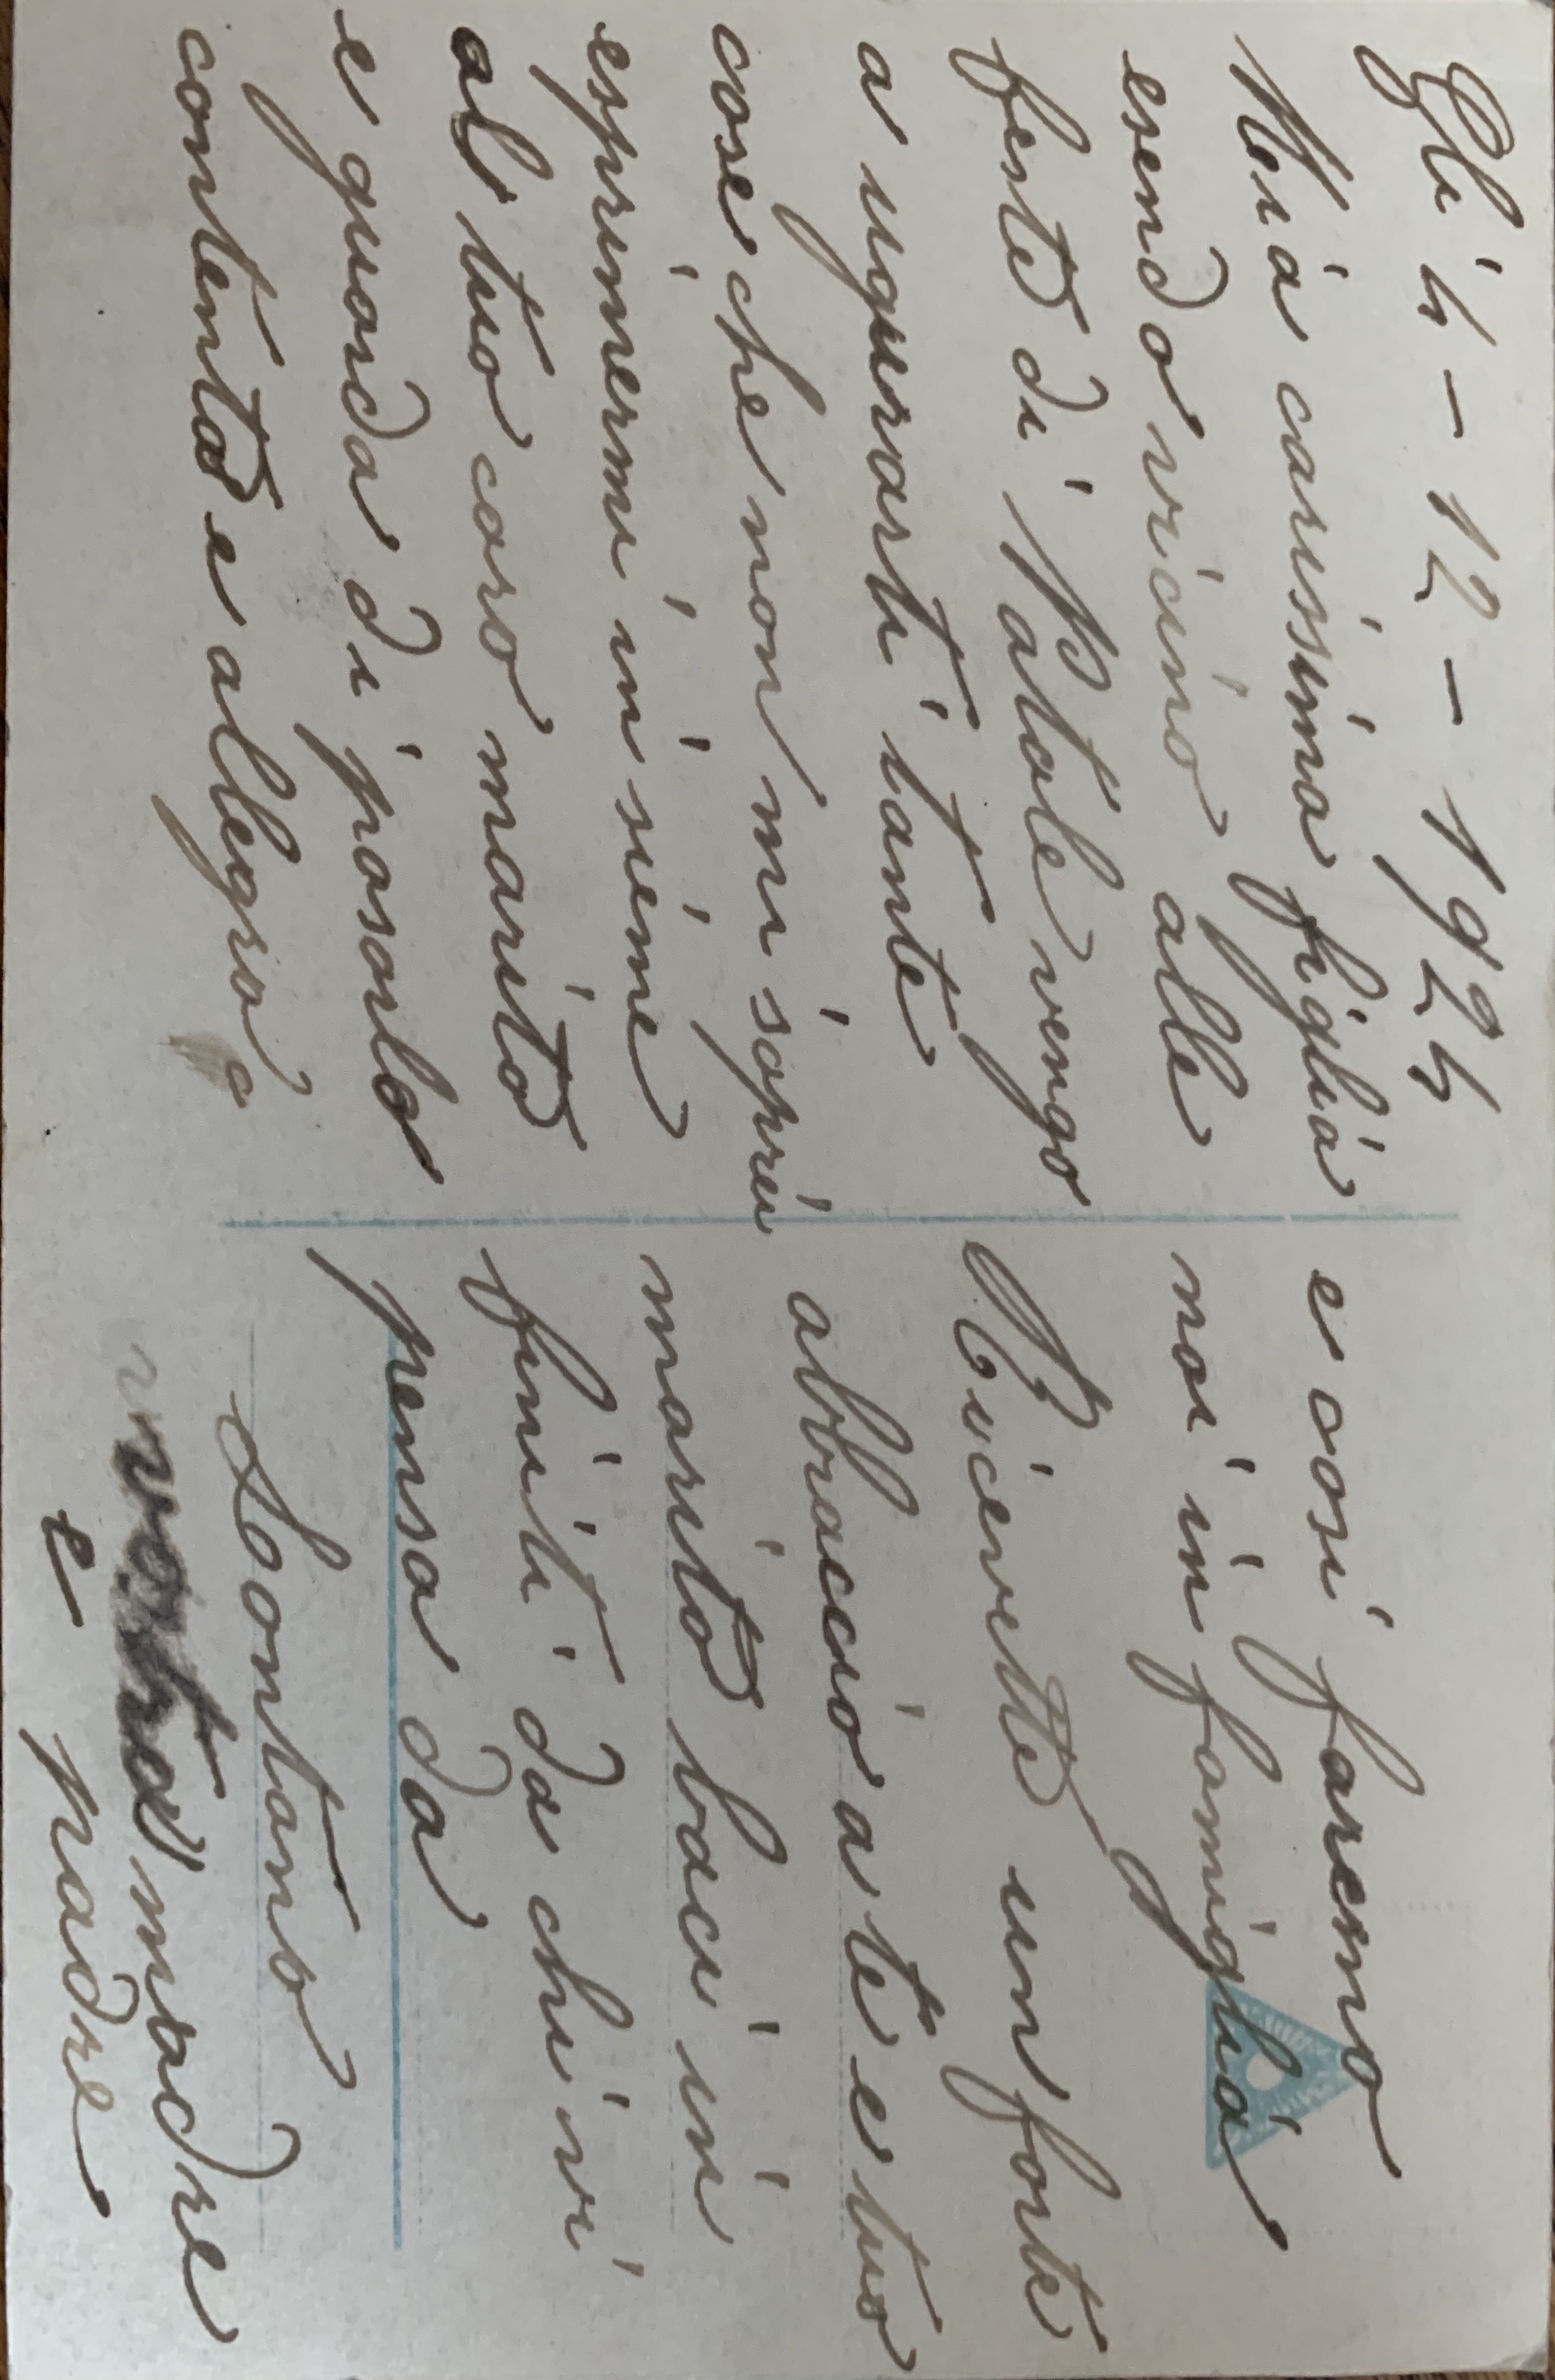 Gli 4-12-1924
Mia carissima figlia
esendo vicino alle
feste di Natale vengo
a ugurarti tante
cose che non mi soprei
esprimermi in sieme
al tuo caro marito
e guarda di pasarlo
contento e allegro
e cosi faremo
noi in famiglia
Ricevete un forte
abbraccio a te e tuo
marito baci in
finiti da chi vi
pensa da
Lontano
vostra madre
e padre